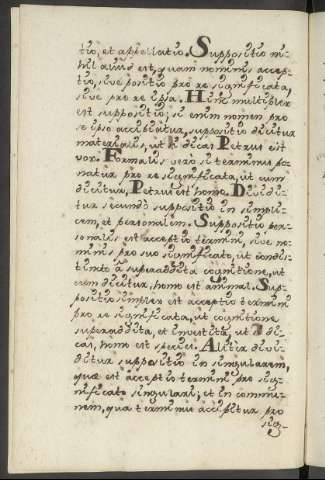 tio, et appellatio. Suppositio ni-
hil aliud est, quam nominis accep-
tio, sive positio pro re significata,
sive pro re ipsa. Hinc multiplex
est suppositio; si enim nomen pro
se ipso accipiatur, suppositio dicitur
materialis, ut si dicas Petrus est
vox. Formalis vero si terminus po-
natur pro re significata, ut cum
dicitur, Petrus est homo. Divid-
itur secundo suppositio in simpli-
cem, et personalem. Suppositio per-
sonalis est acceptio termini, sive no-
minis pro suo significato, ut condis-
tincto a superaddita cognitione, ut
cum dicitur, homo est animal. Sup-
positio simplex est acceptio termini
pro re significata, ut cognitione
superaddita, et investita, ut si di-
cas, homo est species. Aliter divi-
ditur suppositio in singularem,
quae est acceptio termini pro sig-
nificato singulari, et in commu-
nem, qua terminus accipitur pro
sig-